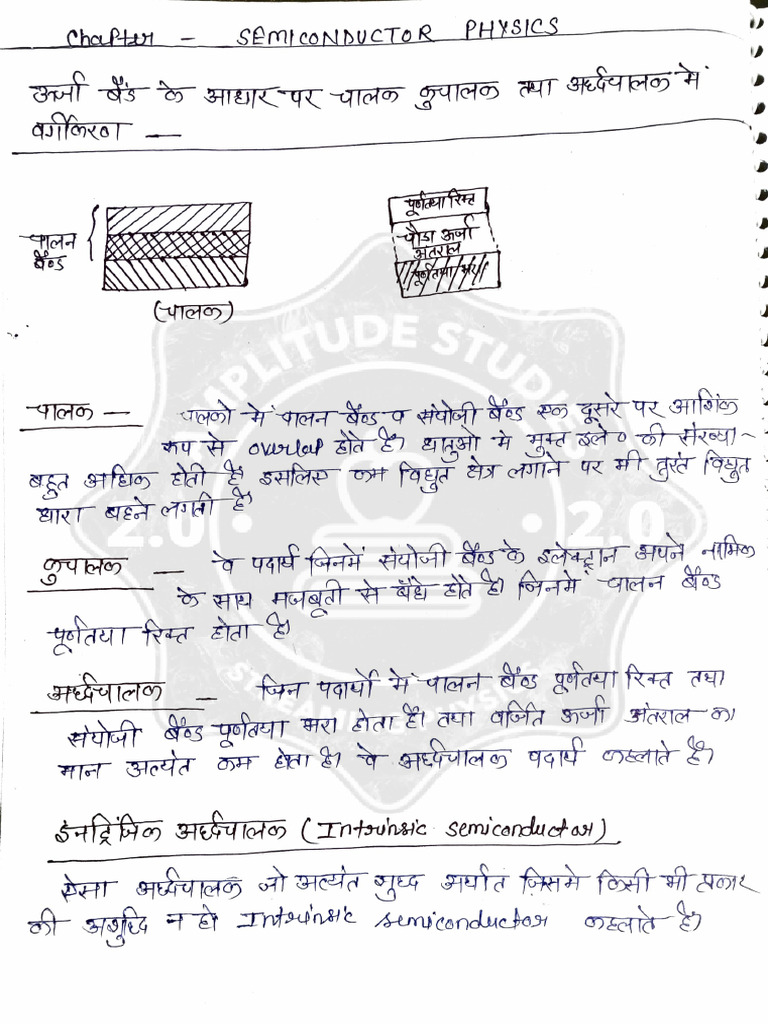 Chapter - SEMICONDUCTOR PHYSICS
ऊर्जा बैंड के आधार पर चालक कुचालक तथा अर्धचालक में
वर्गीकरण —
चालन
बैण्ड
(चालक)
पूर्णतया रिक्त
चौडा ऊर्जा
अंतराल
पूर्णतया भरा
चालक — चालको में चालन बैण्ड व संयोजी बैण्ड एक दूसरे पर आशिंक
रूप से overlap होते है। धातुओ मे मुक्त इले० की संख्या-
बहुत अधिक होती है इसलिए कम विद्युत क्षेत्र लगाने पर भी तुरंत विद्युत
धारा बहने लगती है
कुचालक — वे पदार्थ जिनमें संयोजी बैण्ड के इलेक्ट्रान अपने नाभिक
के साथ मजबूती से बँधे होते है। जिनमे चालन बैण्ड
पूर्णतया रिक्त होता है।
अर्धचालक — जिन पदार्थो मे चालन बैण्ड पूर्णतया रिक्त तथा
संयोजी बैण्ड पूर्णतया भरा होता है। तथा वर्जित ऊर्जा अंतराल का
मान अत्यंत कम होता है। वे अर्धचालक पदार्थ कहलाते है।
इनट्रिंजिक अर्धचालक (Intrinsic semiconductor)
ऐसा अर्धचालक जो अत्यंत शुध्द अर्थात जिसमे किसी भी प्रकार
की अशुद्धि न हो Intrinsic semiconductor कहलाते है।
AMPLITUDE STUDIES
2.0 2.0
STREAMING PHYSICS